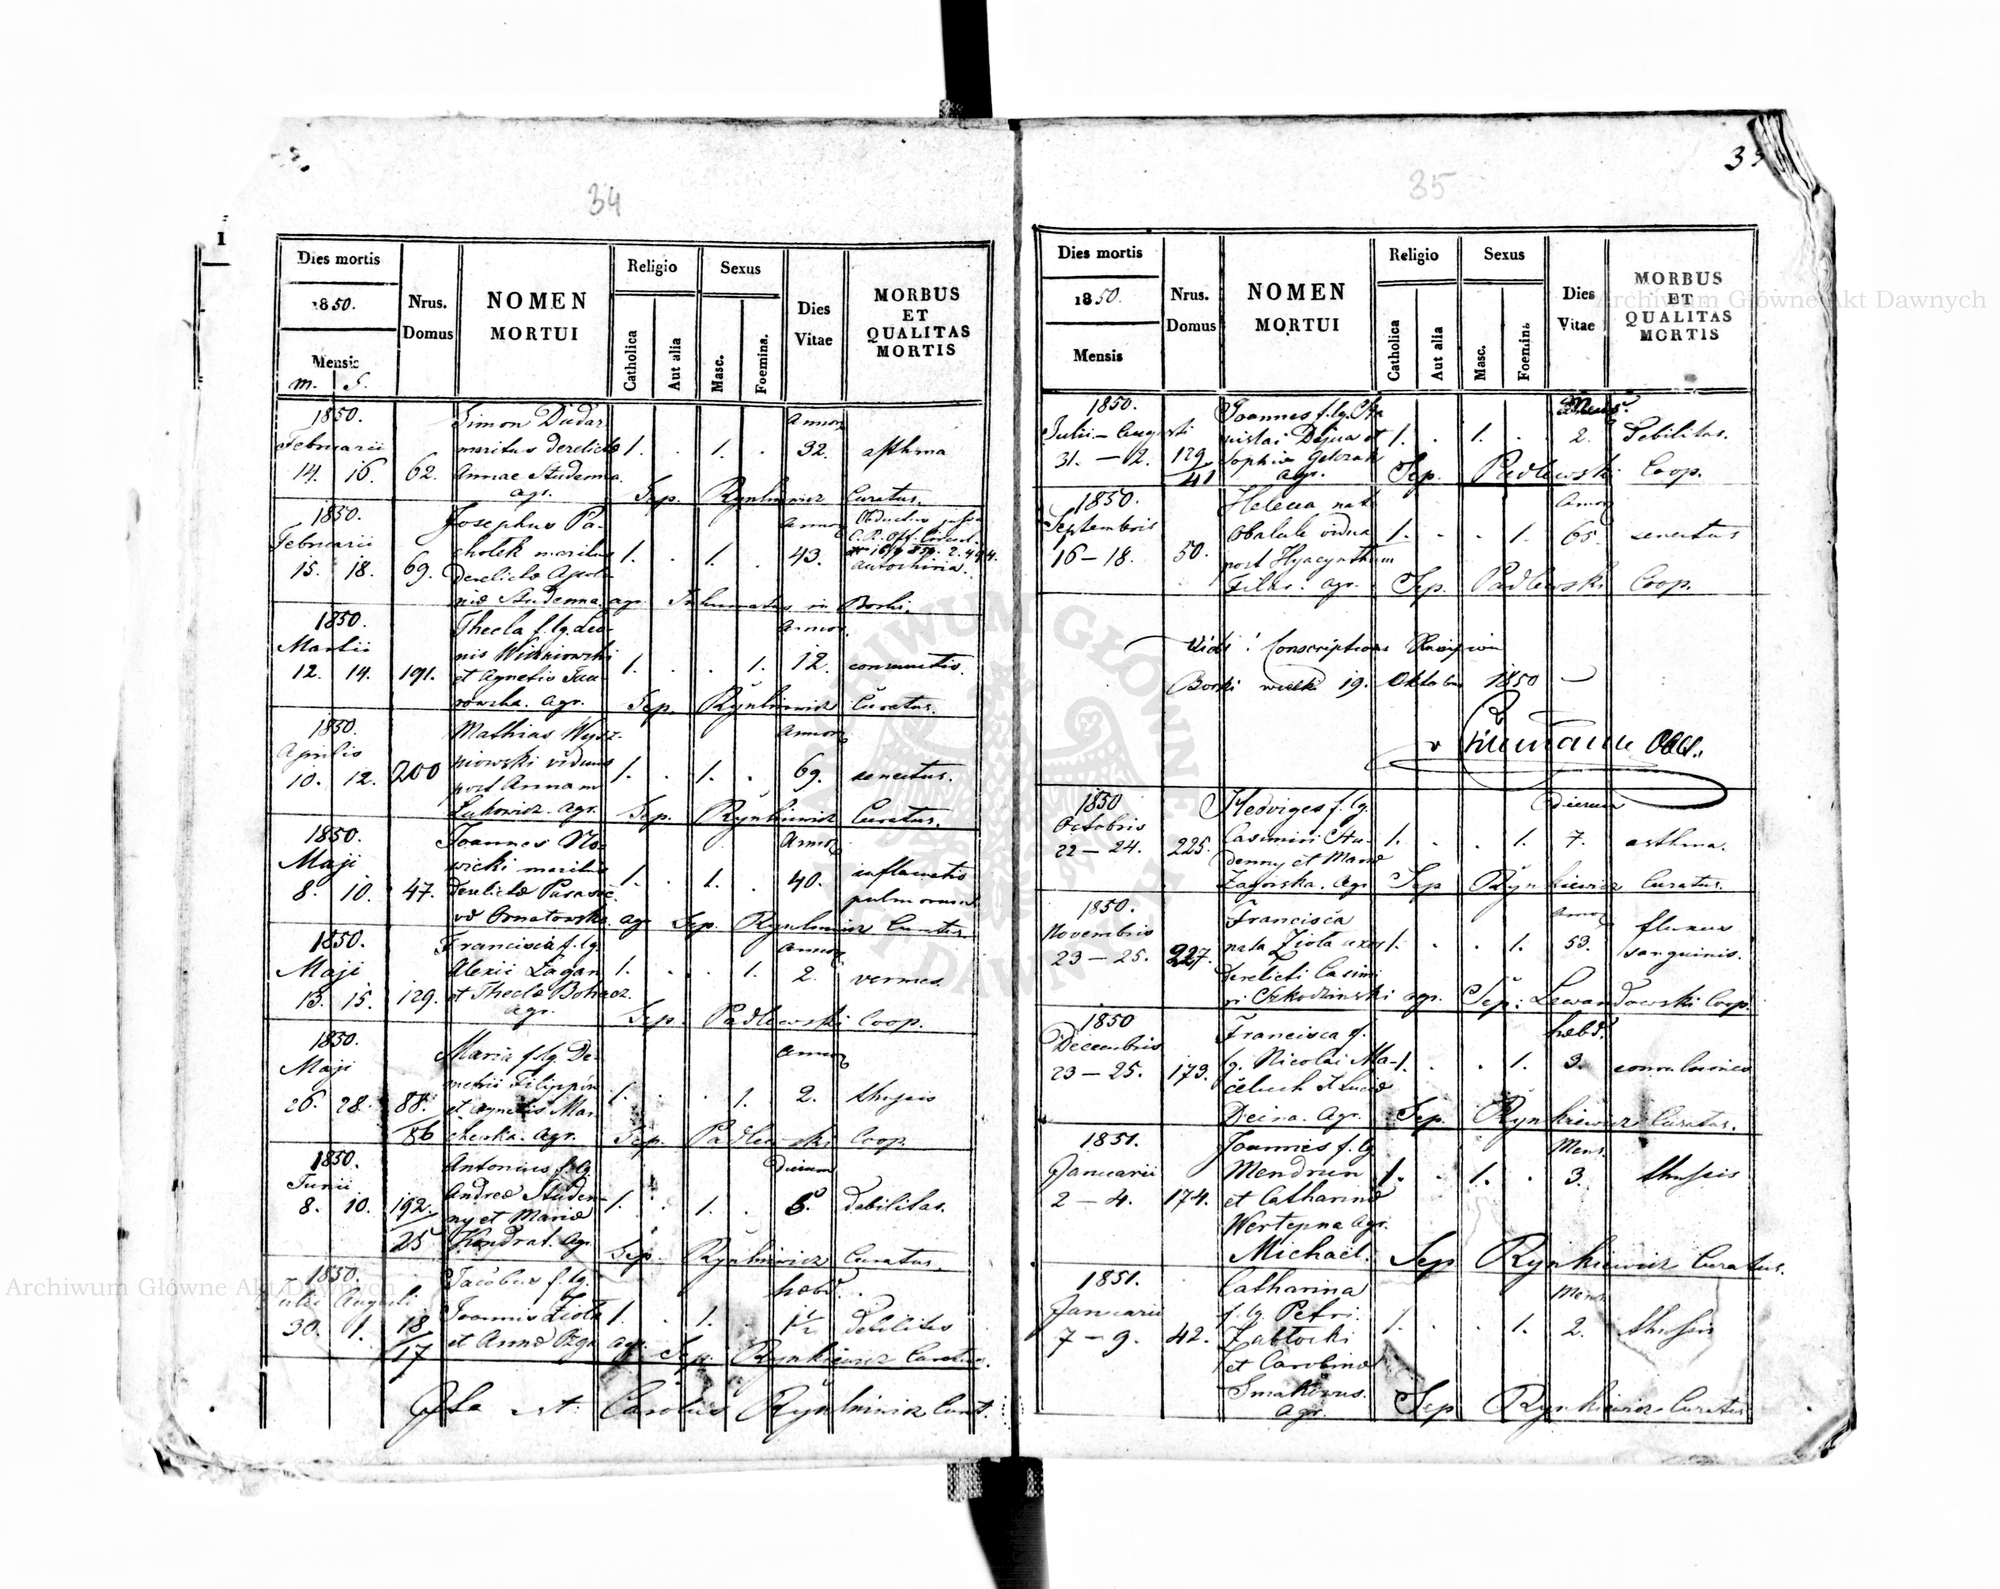 34
Dies mortis
1850.
Mensis
m. S.
Nrus.
Domus
NOMEN
MORTUI
Religio
Catholica
Aut alia
Sexus
Masc.
Foemina.
Dies
Vitae
MORBUS
ET
QUALITAS
MORTIS
1850.
Februarii
14. 16. 62.
Simon Dudar
maritus derelictae
Annae Studenna
agr.
1. . 1. .
Annor
32.
asthma
Sep. Rynkiewicz Curatus.
1850.
Februarii
15. 18. 69.
Josephus Pa-
cholek maritus
derelictae Apolo-
niae Studenna agr.
1. . 1. .
Annor
43.
autochiria.
Inhumatus in Borki.
1850.
Martii
12. 14. 191.
Thecla f. lg. Leo-
nis Wiszniowski
et Agnetis
agr.
1. . . 1.
Annor.
12.
Sep. Rynkiewicz Curatus.
1850.
Aprilis
10. 12. 200
Mathias Wysz-
niowski viduus
post Annam
Lukowicz. agr.
1. . 1. .
Annor
69.
senectus.
Sep. Rynkiewicz Curatus.
1850.
Maji
8. 10. 47.
Joannes No-
wicki maritus
derelictae
Ornatowska. agr
1. . 1. .
Annor
40.
inflamatio
pulmonum
Sep. Rynkiewicz Curatus
1850.
Maji
13. 15. 129.
Francisca f. lg.
Alexii Lagan
et Theclae Bohacz.
agr.
1. . . 1.
Annor
2.
vermes
Sep. Padlewski Coop.
1850.
Maji
26. 28. 88.
86
Maria f. lg. De-
metrii Filippow
et Agnetis Mar-
agr.
1. . . 1.
Annor
2.
thysis
Sep. Padlewski Coop.
1850.
Junii
8. 10. 192.
25
Antonius f. lg.
Andreae Studen-
ny et Mariae
Kondrat. Agr
1. . 1. .
Dierum
debilitas.
Sep. Rynkiewicz Curatus.
1850.
Julii Augusti
30. 1. 18
17
Jacobus f. lg.
Joannis Ziola
et Annae Ozga agr.
1. . 1. .
hebd.
1½
debilitas
Sep. Rynkiewicz Curatus.
Ita est Carolus Rynkiewicz Curat.
35
35
Dies mortis
1850.
Mensis
Nrus.
Domus
NOMEN
MORTUI
Religio
Catholica
Aut alia
Sexus
Masc.
Foemina
Dies
Vitae
MORBUS
ET
QUALITAS
MORTIS
1850.
Julii – Augusti
31. – 2. 129
41
Joannes f. lg.
et
Sophiae
agr.
1. . 1. .
2.
Debilitas.
Sep. Padlewski Coop.
1850.
Septembris
16 – 18. 50.
Helena nat
vidua
post Hyacynthum
agr.
1. . . 1.
Annor
65.
senectus
Sep. Padlewski Coop.
Vidi!
Borki wielki 19. Oktober 1850
1850
Octobris
22 – 24. 225.
Hedviges f. lg.
Casimiri Stu-
denny et Mariae
Zagorska. Agr
1. . . 1.
Dierum
7.
asthma.
Sep Rynkiewicz Curatus.
1850.
Novembris
23 – 25. 227.
Francisca
nata Ziola uxor
derelicti Casimi-
ri Szkodzinski agr.
1. . . 1.
Annor
53.
fluxus
sanguinis.
Sep: Lewandowski Coop.
1850
Decembris
23 – 25. 173.
Francisca f.
lg. Nicolai Ma-
celuch et Luciae
Deina. Agr.
1. . . 1.
hebd.
3.
convulsiones
Sep. Rynkiewicz Curatus.
1851.
Januarii
2 – 4. 174.
Joannes f. lg
Mendrun
et Catharinae
Wertepna Agr.
Michael.
1. . 1. .
Mens.
3.
thysis
Sep Rynkiewicz Curatus.
1851.
Januarii
7 – 9. 42.
Catharina
f. lg. Petri
Zablocki
et Carolinae
Smakowus.
agr.
1. . . 1.
Mens.
2.
thysis
Sep Rynkiewicz Curatus
Archiwum Główne Akt Dawnych
Archiwum Główne Akt Dawnych
ARCHIWUM GŁÓWNE AKT DAWNYCH